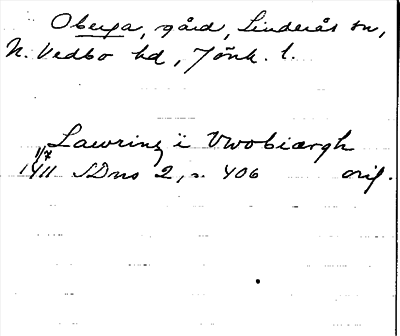 Oberga, gård, Linderås sn,
N. Vedbo hd, Jönk. l.
Lawrinz i Vwobiærgh
1/7
1411 SDns 2, s. 406 orig.